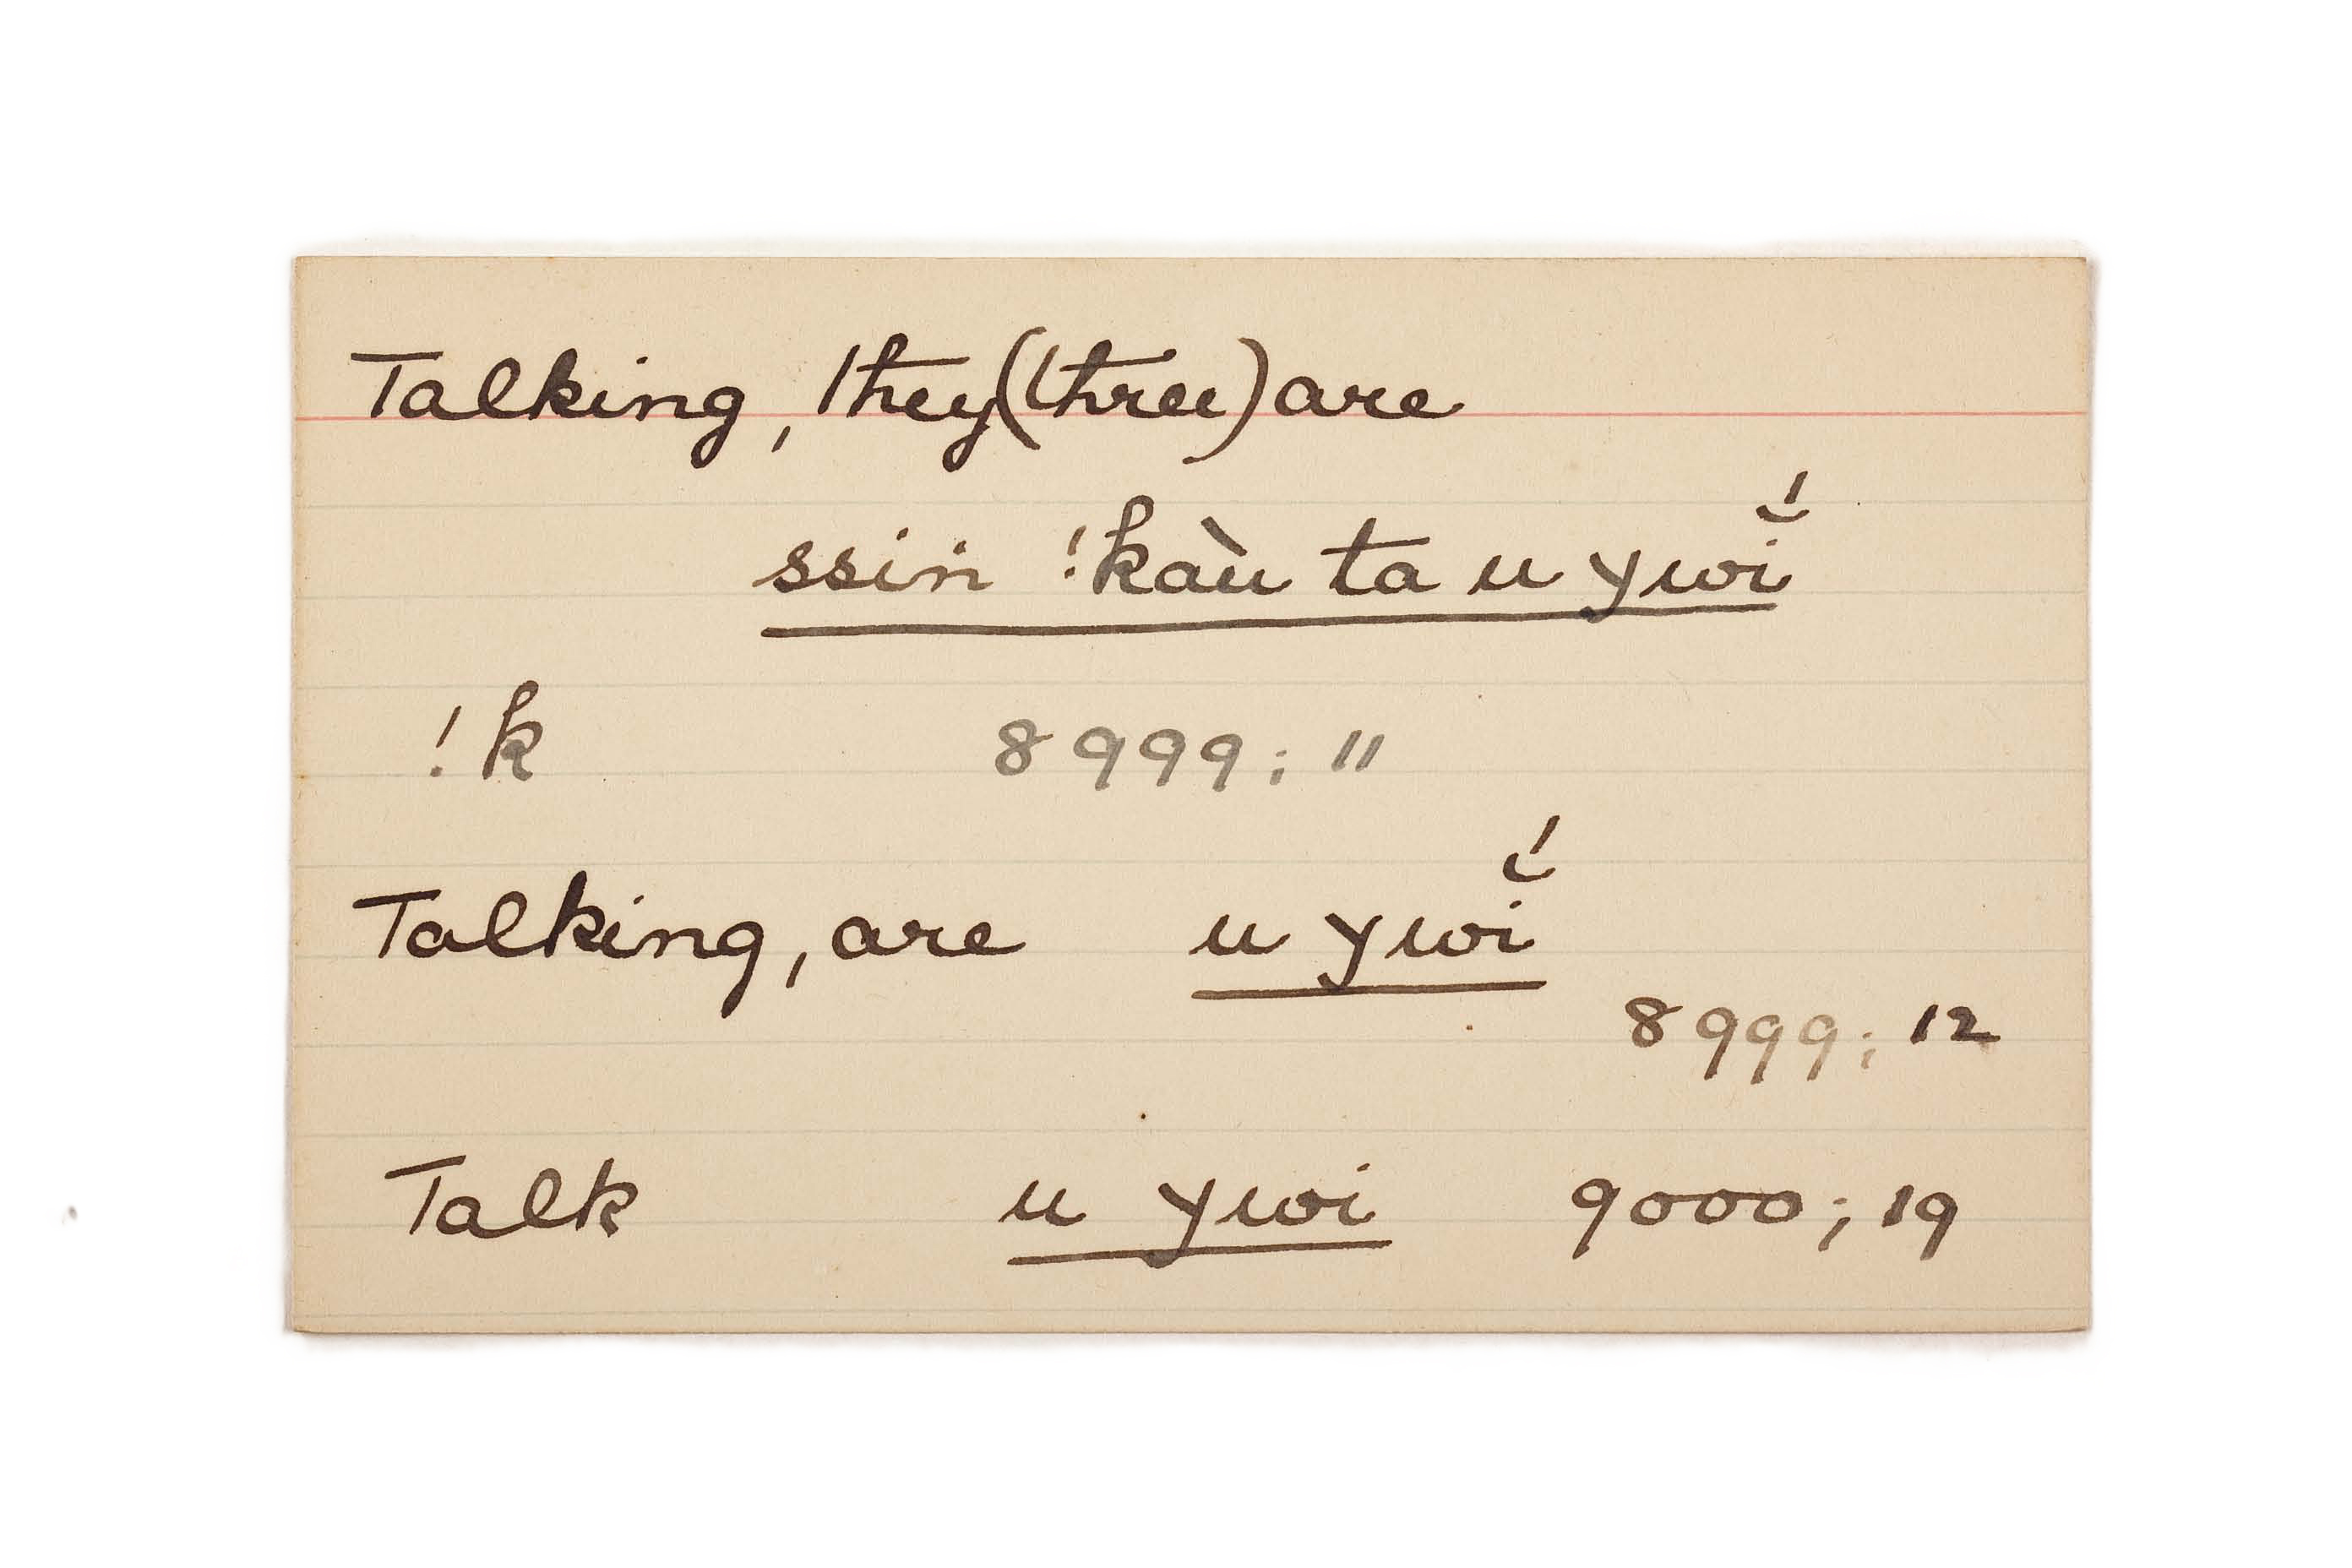 Talking, they (three) are
ssin !kàu ta u ywĭ́
!k 8999; 11
Talking, are u ywĭ́
8999; 12
Talk u ywi 9000; 19